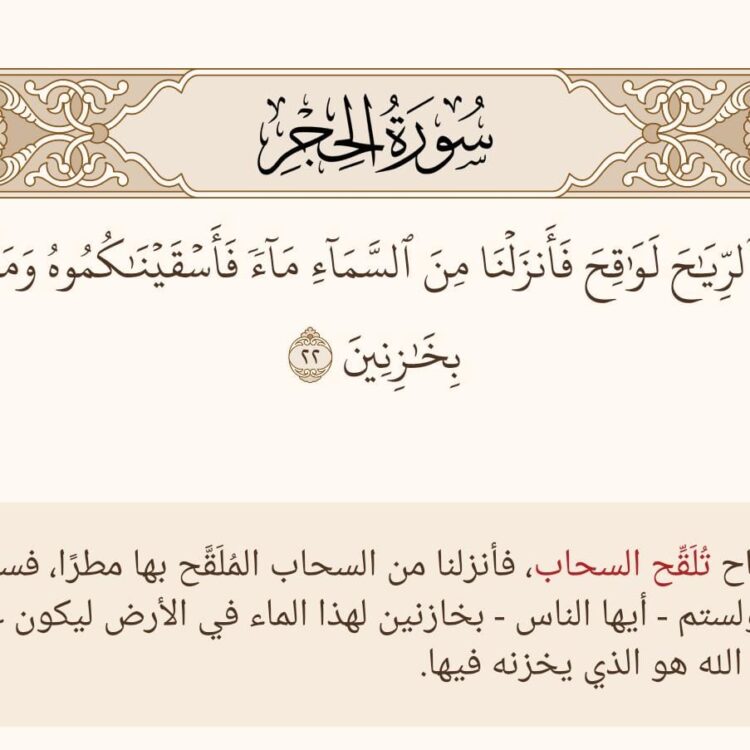 سُورَةُ الحِجْرِ
ٱلرِّيَٰحَ لَوَٰقِحَ فَأَنزَلْنَا مِنَ ٱلسَّمَآءِ مَآءً فَأَسْقَيْنَٰكُمُوهُ وَمَا
بِخَٰزِنِينَ ٢٢
تُلَقِّح السحاب، فأنزلنا من السحاب المُلَقَّح بها مطرًا،
ولستم - أيها الناس - بخازنين لهذا الماء في الأرض ليكون
الله هو الذي يخزنه فيها.